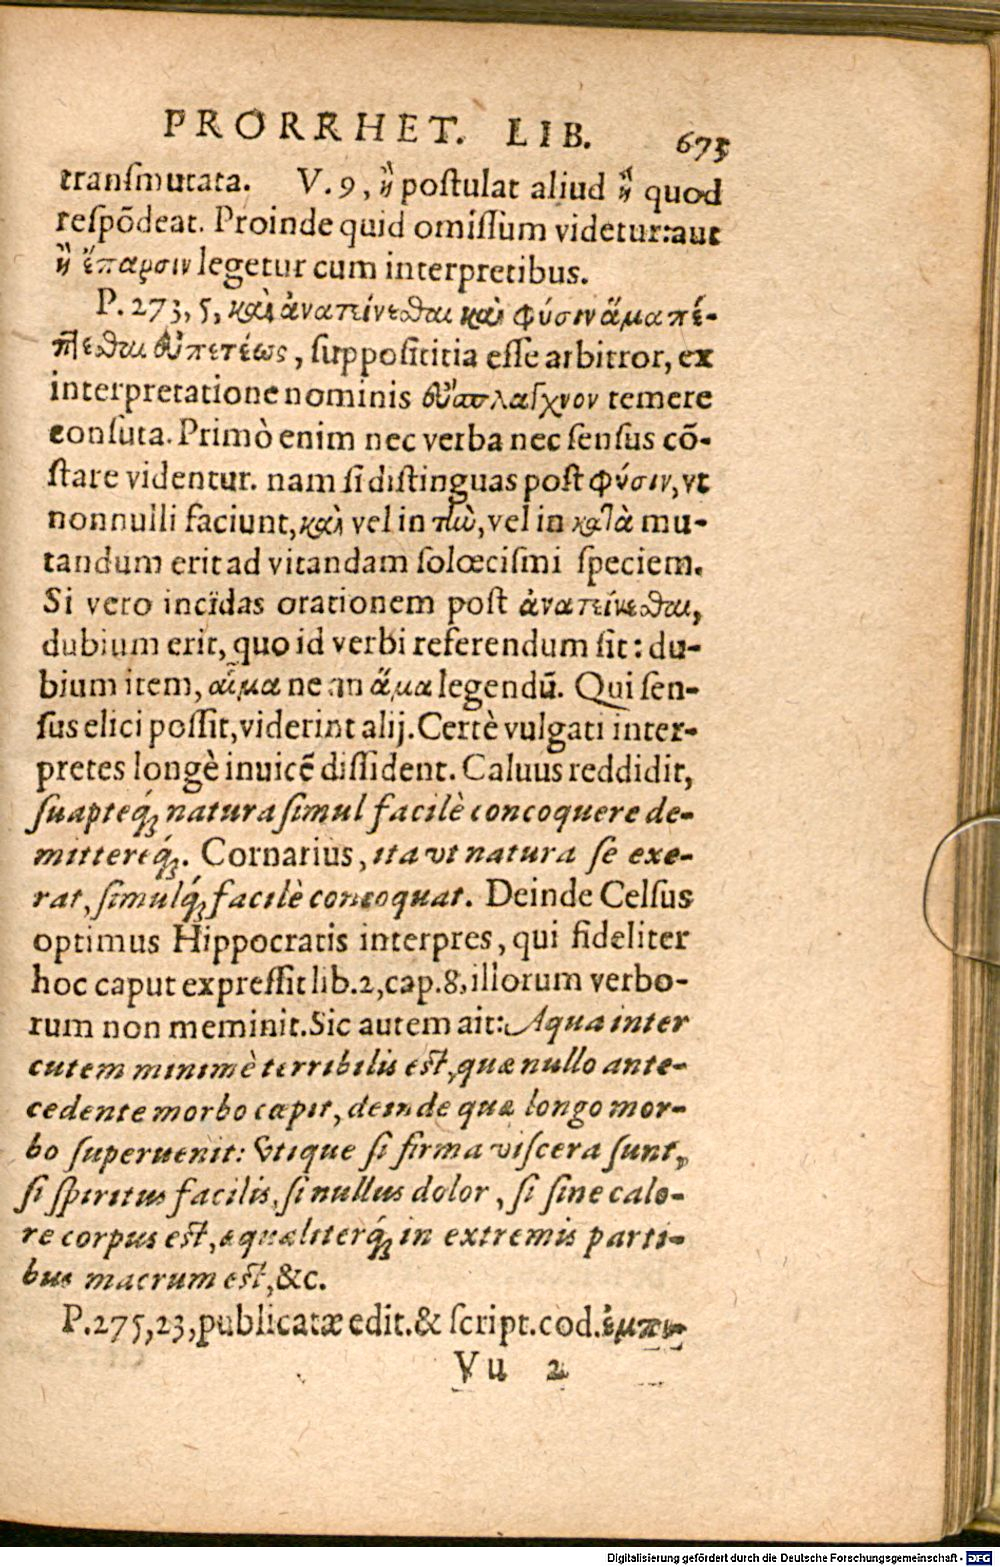 PRORRHET. LIB. 675
tranſmutata. V. 9, ἢ poſtulat aliud ἢ quod
reſpōdeat. Proinde quid omiſſum videtur: aut
ἢ ἔπαρσιν legetur cum interpretibus.
P. 273, 5, καὶ ἀναπίνεσθαι καὶ φύσιν ἅμα πέ-
πτεσθαι εὐπετέως, ſuppoſititia eſſe arbitror, ex
interpretatione nominis εὔσπλαγχνον temere
conſuta. Primò enim nec verba nec ſenſus cō-
ſtare videntur. nam ſi diſtinguas poſt φύσιν, vt
nonnulli faciunt, καὶ vel in τὼ, vel in κατὰ mu-
tandum erit ad vitandam ſolœciſmi ſpeciem.
Si vero incïdas orationem poſt ἀναπίνεσθαι,
dubium erit, quo id verbi referendum ſit: du-
bium item, αἷμα ne an ἅμα legendū. Qui ſen-
ſus elici poſſit, viderint alij. Certè vulgati inter-
pretes longè inuicē diſſident. Caluus reddidit,
ſuapteq́; natura ſimul facilè concoquere de-
mittereq́;. Cornarius, ita vt natura ſe exe-
rat, ſimulq́; facilè concoquat. Deinde Celſus
optimus Hippocratis interpres, qui fideliter
hoc caput expreſſit lib. 2, cap. 8, illorum verbo-
rum non meminit. Sic autem ait: Aqua inter
cutem minimè terribilis eſt, quæ nullo ante-
cedente morbo cœpit, deinde quæ longo mor-
bo ſuperuenit: Vtique ſi firma viſcera ſunt,
ſi ſpiritus facilis, ſi nullus dolor, ſi ſine calo-
re corpus eſt, æqualiterq́; in extremis parti-
bus macrum eſt, &c.
P. 275, 23, publicatæ edit. & ſcript. cod.
Vu 2
Digitalisierung gefördert durch die Deutsche Forschungsgemeinschaft - DFG